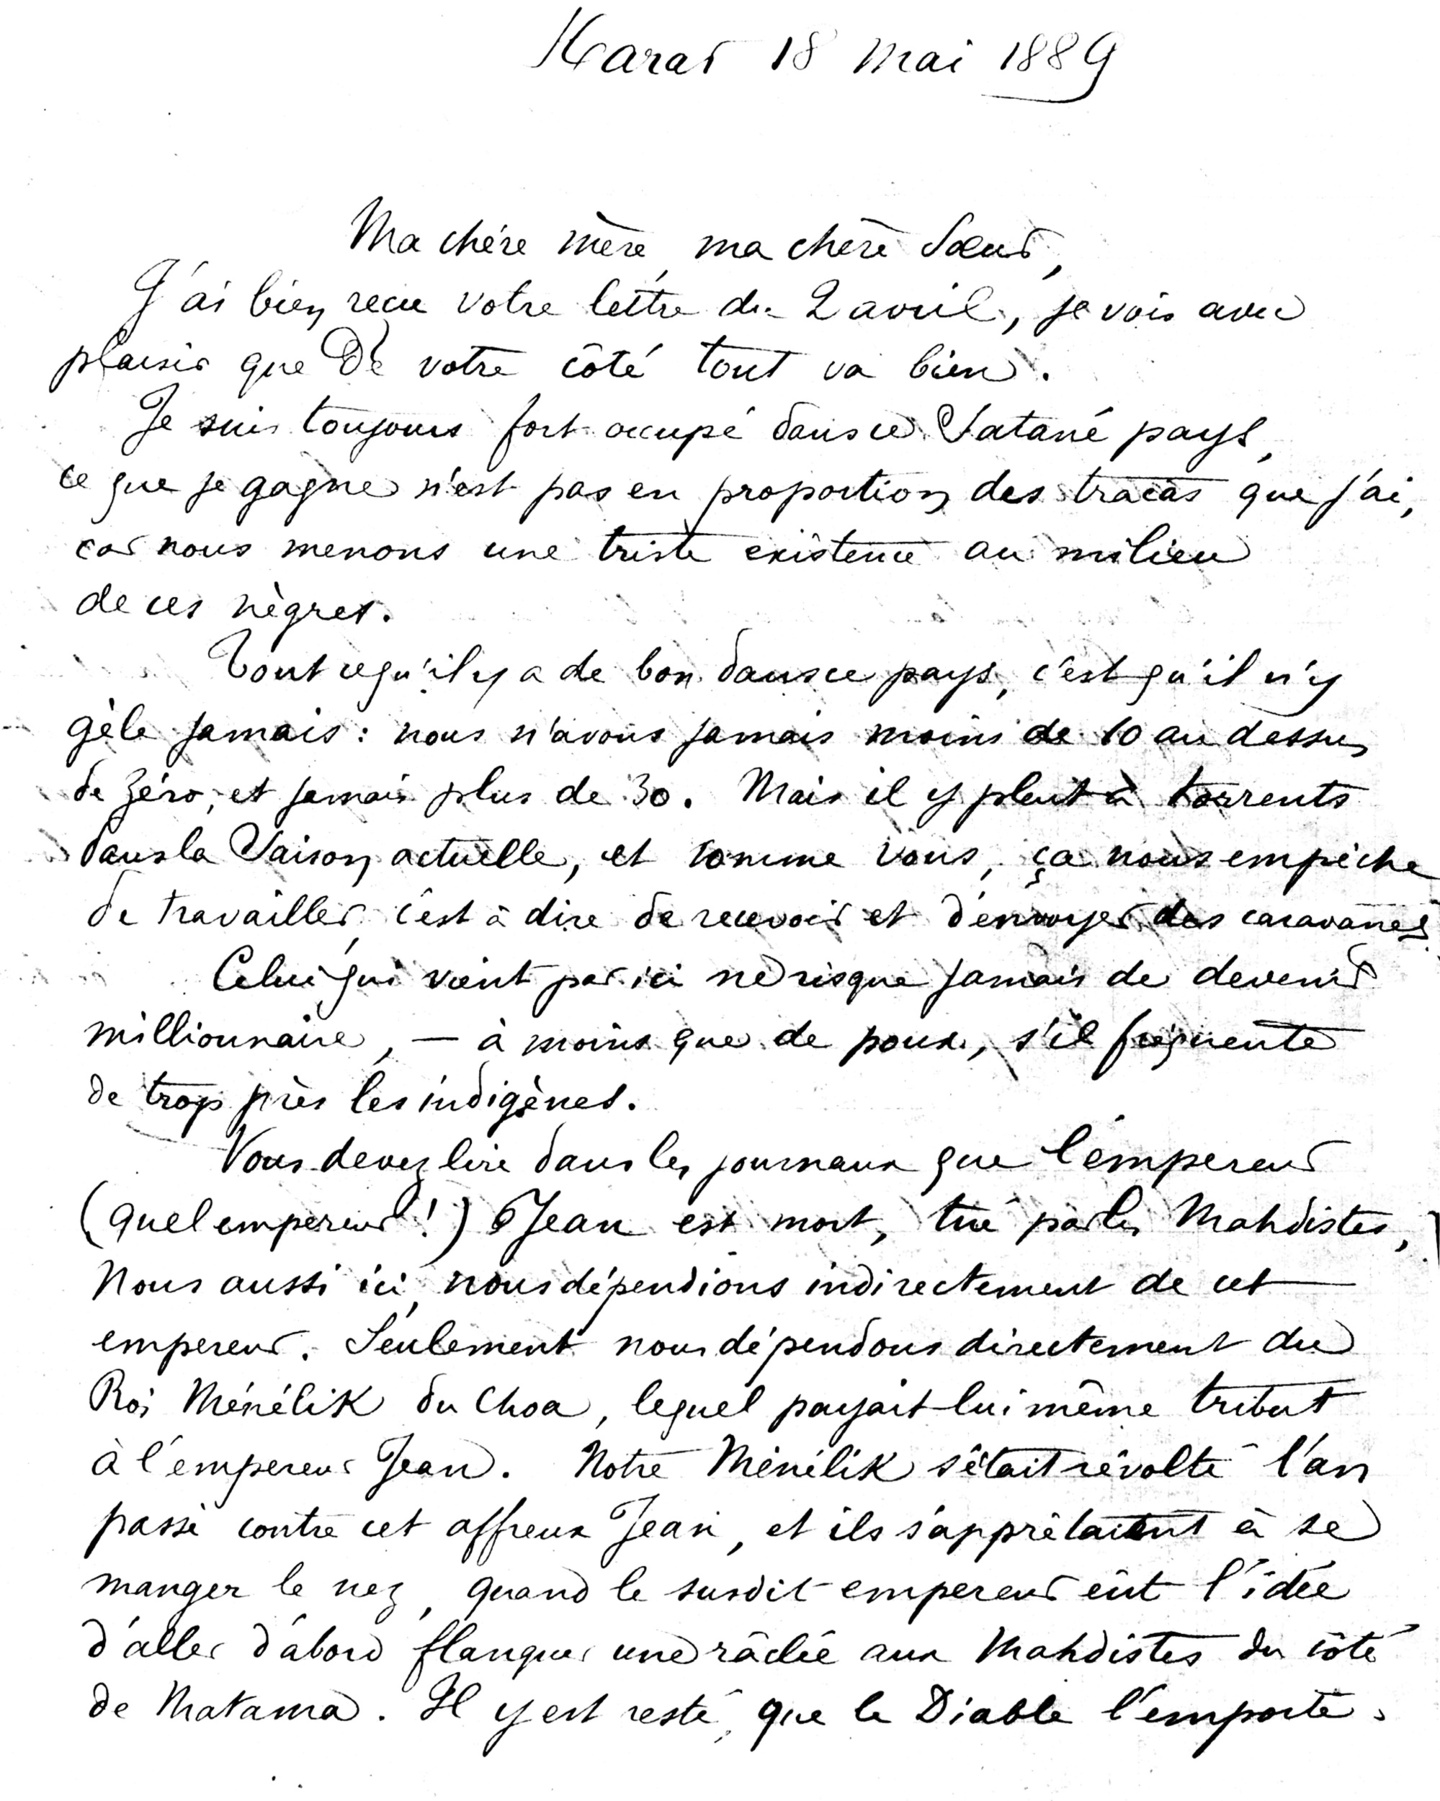 Harar 18 mai 1889
Ma chère mère, ma chère sœur,
J'ai bien reçu votre lettre du 2 avril, je vois avec
plaisir que de votre côté tout va bien.
Je suis toujours fort occupé dans ce satané pays,
ce que je gagne n'est pas en proportion des tracas que j'ai,
car nous menons une triste existence au milieu
de ces nègres.
Tout ce qu'il y a de bon dans ce pays, c'est qu'il n'y
gèle jamais : nous n'avons jamais moins de 10 au dessus
de zéro, et jamais plus de 30. Mais il y pleut à torrents
dans la saison actuelle, et comme vous, ça nous empêche
de travailler c'est à dire de recevoir et d'envoyer des caravanes
Celui qui vient par ici ne risque jamais de devenir
millionnaire, — à moins que de poux, s'il fréquente
de trop près les indigènes.
Vous devez lire dans les journaux que l'empereur
(quel empereur !) Jean est mort, tué par les Mahdistes,
Nous aussi ici, nous dépendions indirectement de cet
empereur. Seulement nous dépendons directement du
Roi Ménélik du Choa, lequel payait lui même tribut
à l'empereur Jean. Notre Ménélik s'était révolté l'an
passé contre cet affreux Jean, et ils s'apprêtaient à se
manger le nez, quand le susdit empereur eût l'idée
d'aller d'abord flanquer une râclée aux Mahdistes du côté
de Matama. Il y est resté, que le Diable l'emporte.